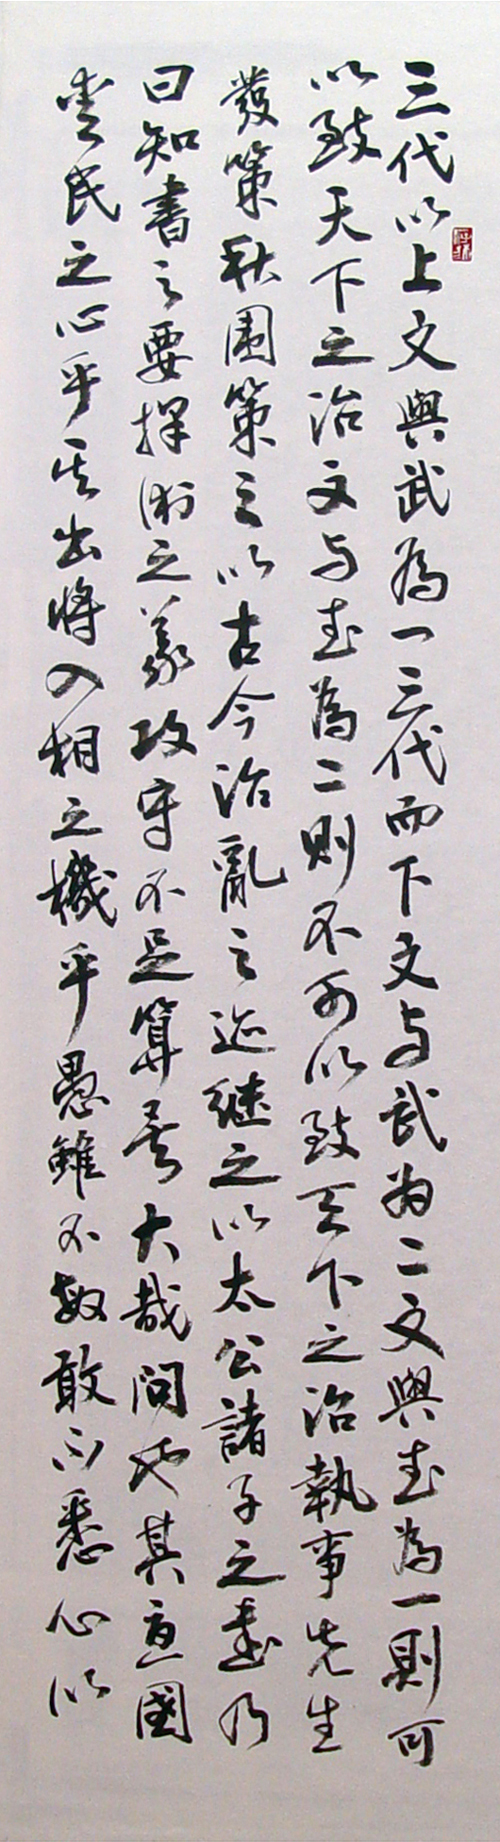 三代以上文與武為一三代而下文与武为二文與武為一則可
以致天下之治文与武為二則不可以致天下之治執事先生
發策秋圍策之以古今治亂之迹継之以太公諸子之書乃
曰知書之要擇術之義攻守不足算矣大哉問也其憂國
愛民之心乎其出將入相之機乎愚雖不敏敢不悉心以